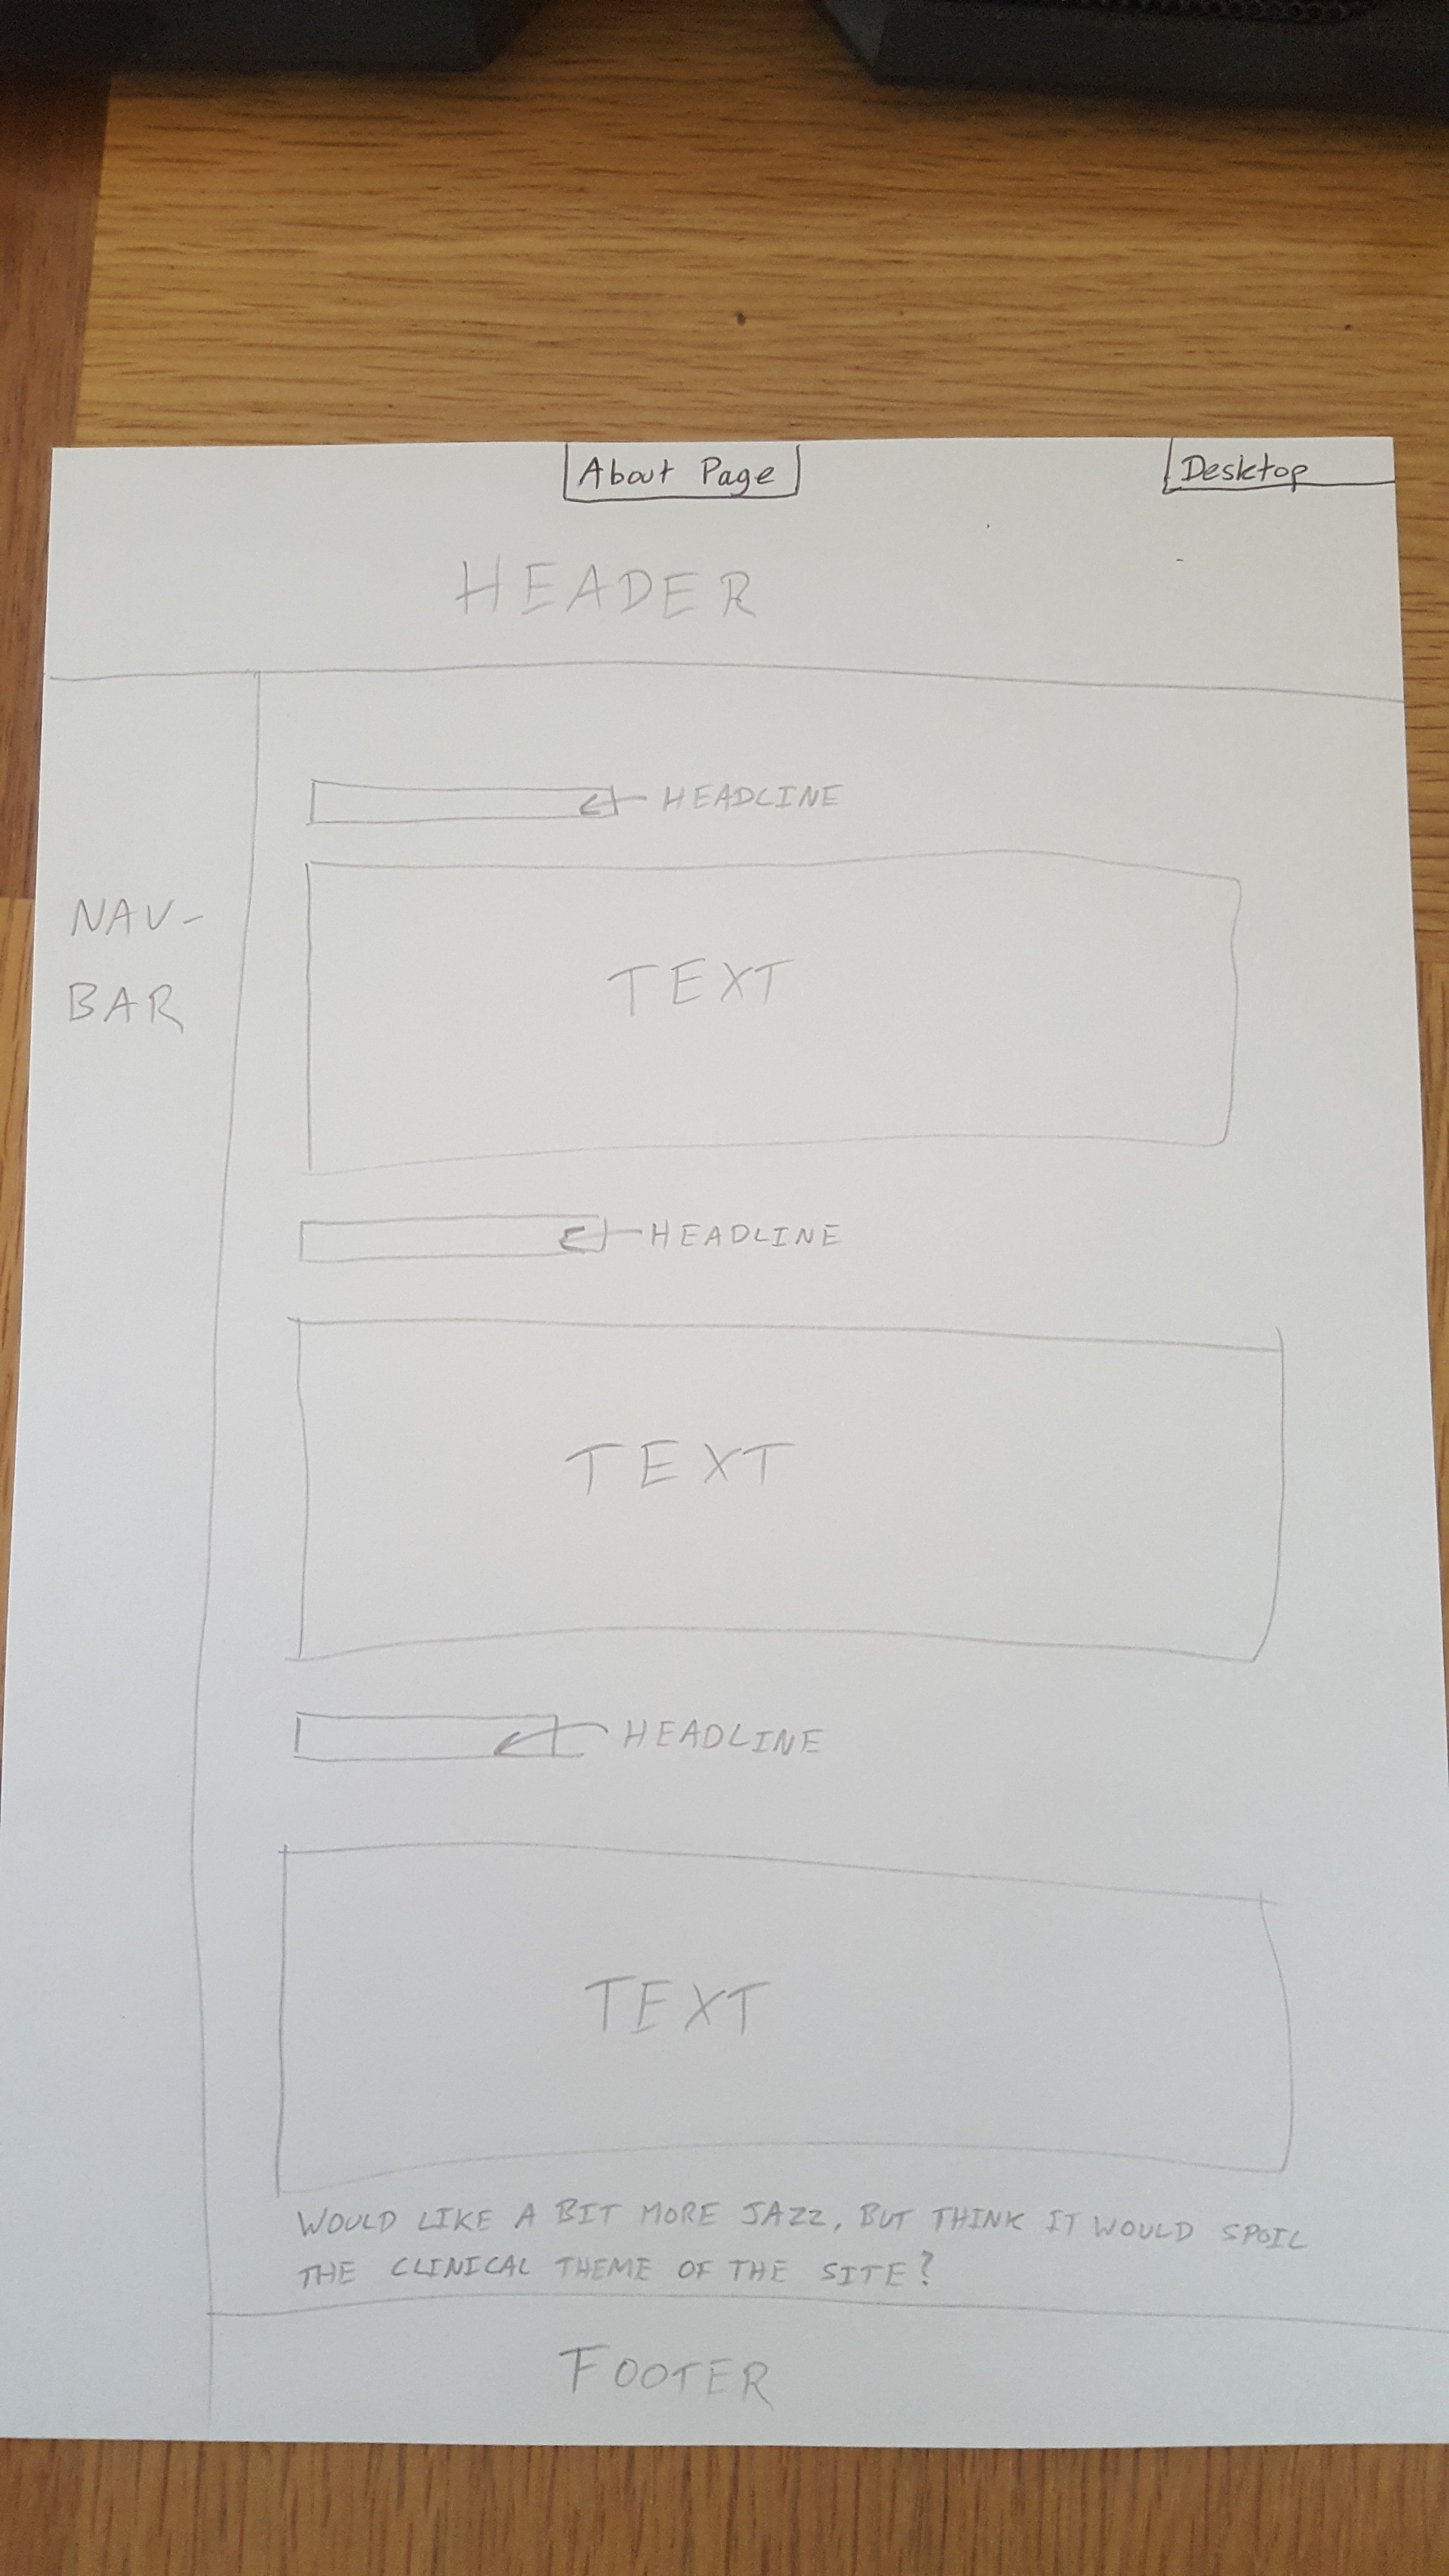 About Page
Desktop
HEADER
HEADLINE
NAV-
BAR
TEXT
HEADLINE
TEXT
HEADLINE
TEXT
WOULD LIKE A BIT MORE JAZZ, BUT THINK IT WOULD SPOIL
THE CLINICAL THEME OF THE SITE?
FOOTER